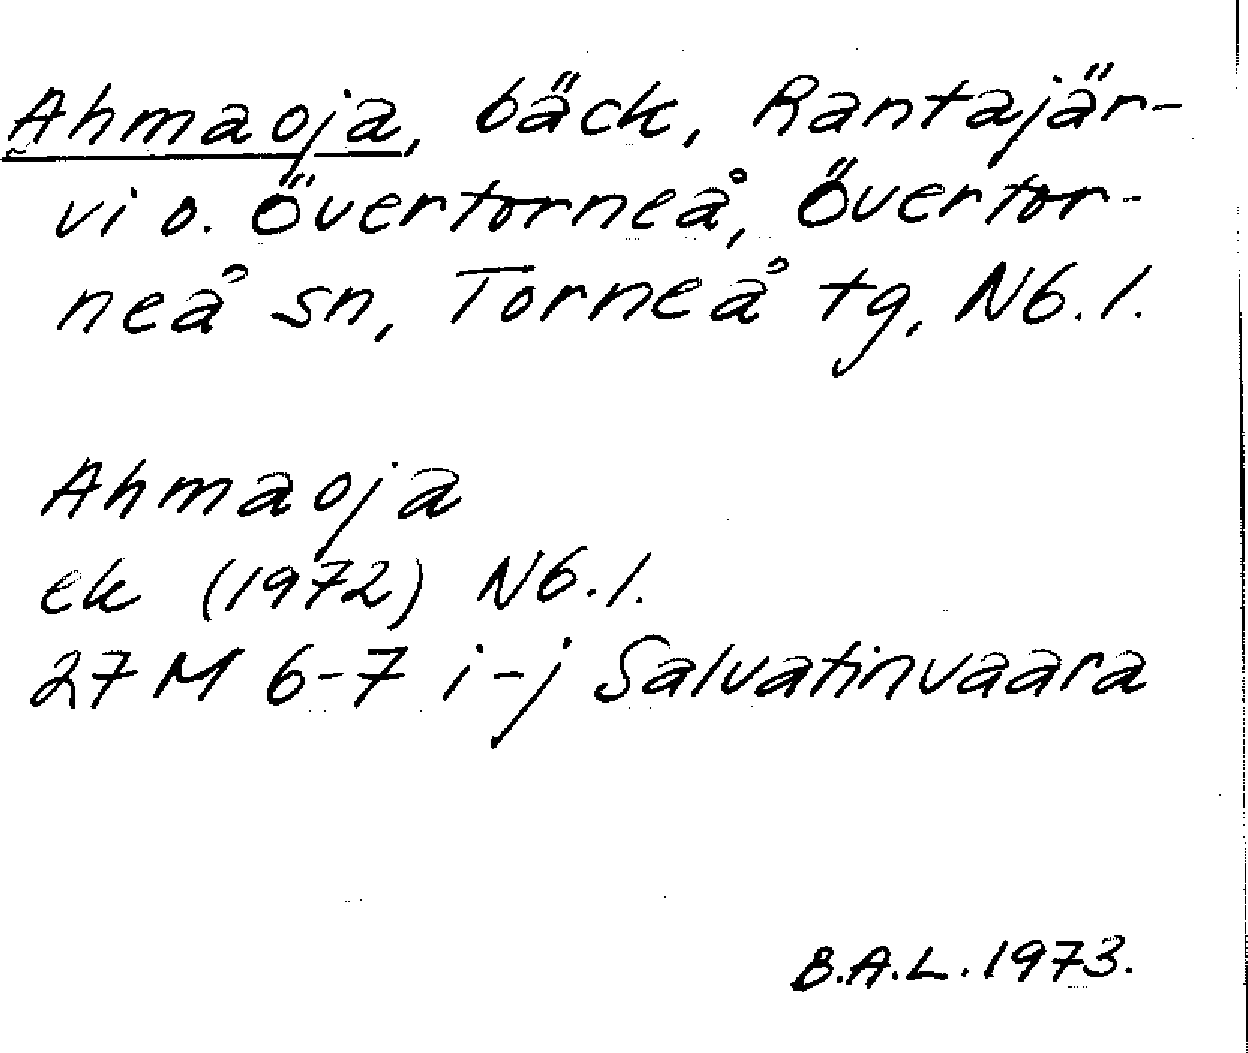 Ahmaoja, bäck, Rantajär-
vi o. Övertorneå, Övertor-
neå sn, Torneå tg, Nb. l.
Ahmaoja
ek (1972) Nb. l.
27 M 6-7 i-j Salvatinvaara
B.A.L. 1973.